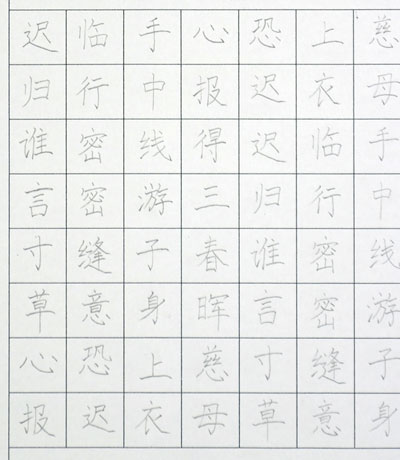 慈母手中线游子身
上衣临行密密缝意
恐迟迟归谁言寸草
心报得三春晖慈母
手中线游子身上衣
临行密密缝意恐迟
迟归谁言寸草心报